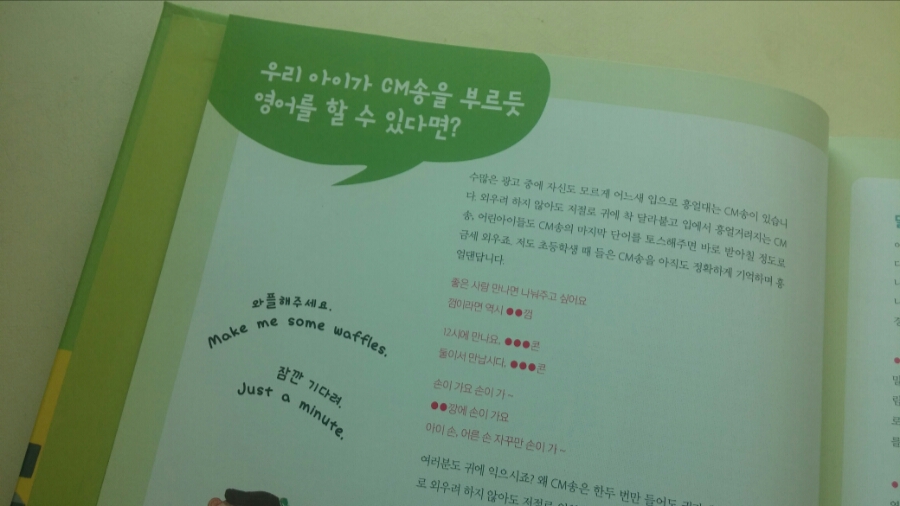 우리 아이가 CM송을 부르듯
영어를 할 수 있다면?
수많은 광고 중에 자신도 모르게 어느새 입으로 흥얼대는 CM송이 있습니
다. 외우려 하지 않아도 저절로 귀에 착 달라붙고 입에서 흥얼거려지는 CM
송, 어린아이들도 CM송의 마지막 단어를 토스해주면 바로 받아칠 정도로
금세 외우죠. 저도 초등학생 때 들은 CM송을 아직도 정확하게 기억하며 흥
얼댄답니다.
좋은 사람 만나면 나눠주고 싶어요
껌이라면 역시 ●●껌
12시에 만나요, ●●●콘
둘이서 만납시다, ●●●콘
손이 가요 손이 가~
●●깡에 손이 가요
아이 손, 어른 손 자꾸만 손이 가~
와플해주세요.
Make me some waffles.
잠깐 기다려.
Just a minute.
여러분도 귀에 익으시죠? 왜 CM송은 한두 번만 들어도
로 외우려 하지 않아도 저절로